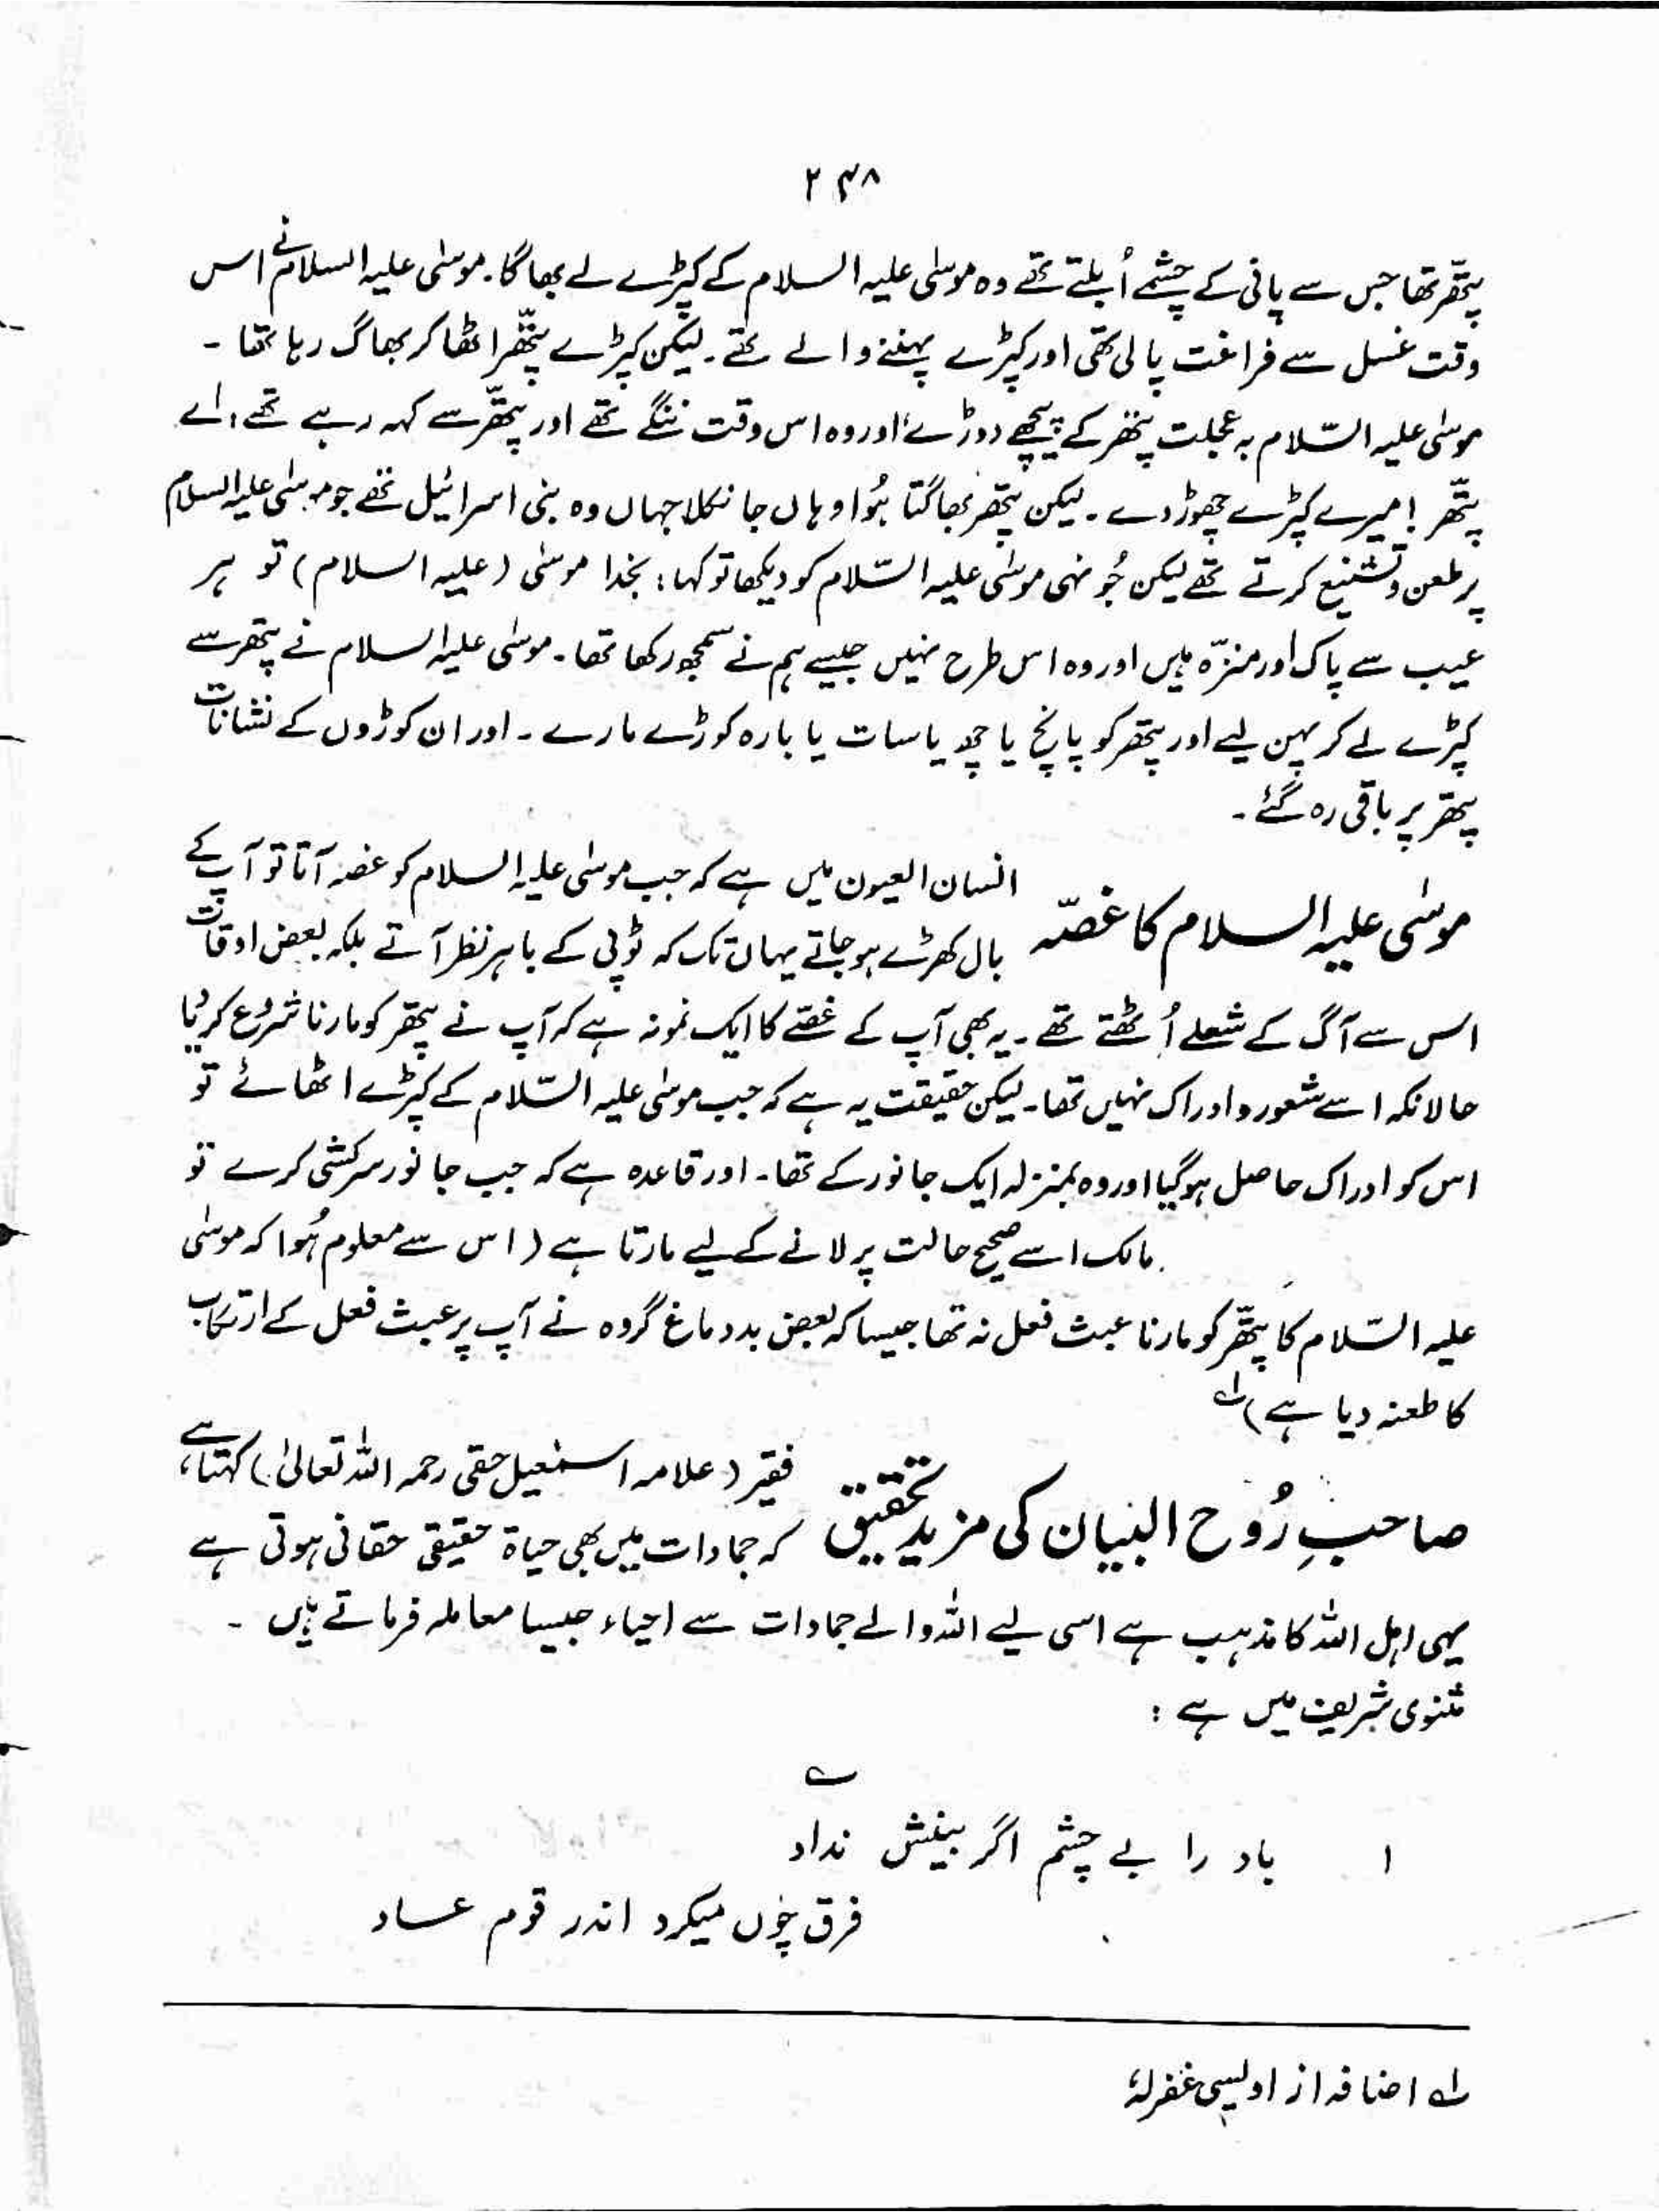 ۲۴۸
پتّھر تھا جس سے پانی کے چشمے اُبلتے تھے وہ موسٰی علیہ السلام کے کپڑے لے بھاگا۔ موسٰی علیہ السلام نے اس
وقت غسل سے فراغت پالی تھی اور کپڑے پہننے والے تھے۔ لیکن کپڑے پتّھر اٹھا کر بھاگ رہا تھا ۔
موسٰی علیہ السّلام بہ عجلت پتھر کے پیچھے دوڑے اور وہ اس وقت ننگے تھے اور پتّھر سے کہہ رہے تھے، اے
پتّھر! میرے کپڑے چھوڑ دے ۔ لیکن پتھر بھاگتا ہُوا وہاں جا نکلا جہاں وہ بنی اسرائیل تھے جو موسٰی علیہ السلام
پر طعن و تشنیع کرتے تھے لیکن جُونہی موسٰی علیہ السّلام کو دیکھا تو کہا: بخدا موسٰی (علیہ السلام) تو ہر
عیب سے پاک اور منزّہ ہیں اور وہ اس طرح نہیں جیسے ہم نے سمجھ رکھا تھا۔ موسٰی علیہ السلام نے پتھر سے
کپڑے لے کر پہن لیے اور پتھر کو پانچ یا چھ یا سات یا بارہ کوڑے مارے ۔ اور ان کوڑوں کے نشانات
پتھر پر باقی رہ گئے ۔
موسٰی علیہ السلام کا غصّہ
انسان العیون میں ہے کہ جب موسٰی علیہ السلام کو غصہ آتا تو آپ کے
بال کھڑے ہو جاتے یہاں تک کہ ٹوپی کے باہر نظر آتے بلکہ بعض اوقات
اس سے آگ کے شعلے اُٹھتے تھے ۔ یہ بھی آپ کے غصّے کا ایک نمونہ ہے کہ آپ نے پتھر کو مارنا شروع کر دیا
حالانکہ اسے شعور و ادراک نہیں تھا۔ لیکن حقیقت یہ ہے کہ جب موسٰی علیہ السّلام کے کپڑے اٹھائے تو
اس کو ادراک حاصل ہو گیا اور وہ بمنزلہ ایک جانور کے تھا۔ اور قاعدہ ہے کہ جب جانور سرکشی کرے تو
مالک اسے صحیح حالت پر لانے کے لیے مارتا ہے (اس سے معلوم ہُوا کہ موسٰی
علیہ السّلام کا پتّھر کو مارنا عبث فعل نہ تھا جیسا کہ بعض بد دماغ گروہ نے آپ پر عبث فعل کے ارتکاب
کا طعنہ دیا ہے)لہ
صاحبِ رُوح البیان کی مزید تحقیق
فقیر (علامہ اسمٰعیل حقی رحمہ اللہ تعالیٰ) کہتا ہے،
کہ جمادات میں بھی حیاۃ حقیقی حقانی ہوتی ہے
یہی اہل اللہ کا مذہب ہے اسی لیے اللہ والے جمادات سے احیاء جیسا معاملہ فرماتے ہیں ۔
مثنوی شریف میں ہے :
؎
۱ باد را بے چشم اگر بینش نداد
فرق چُوں میکرد اندر قوم عاد
لہ اضافہ از اویسی غفرلہٗ